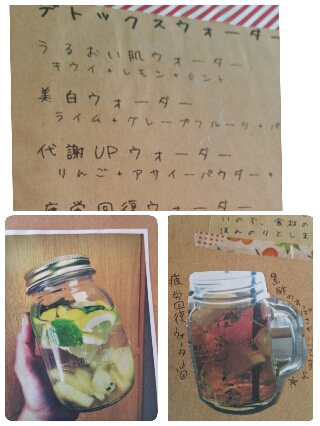 デトックスウォーター
うるおい肌ウォーター
キウイ+レモン+ミント
美白ウォーター
ライム+グレープフルーツ+
代謝UPウォーター
りんご+アサイーパウダー+
疲労回復ウォーター
いので、食材の
ほんのりとしま
疲労回復ウォーター
黒酢の